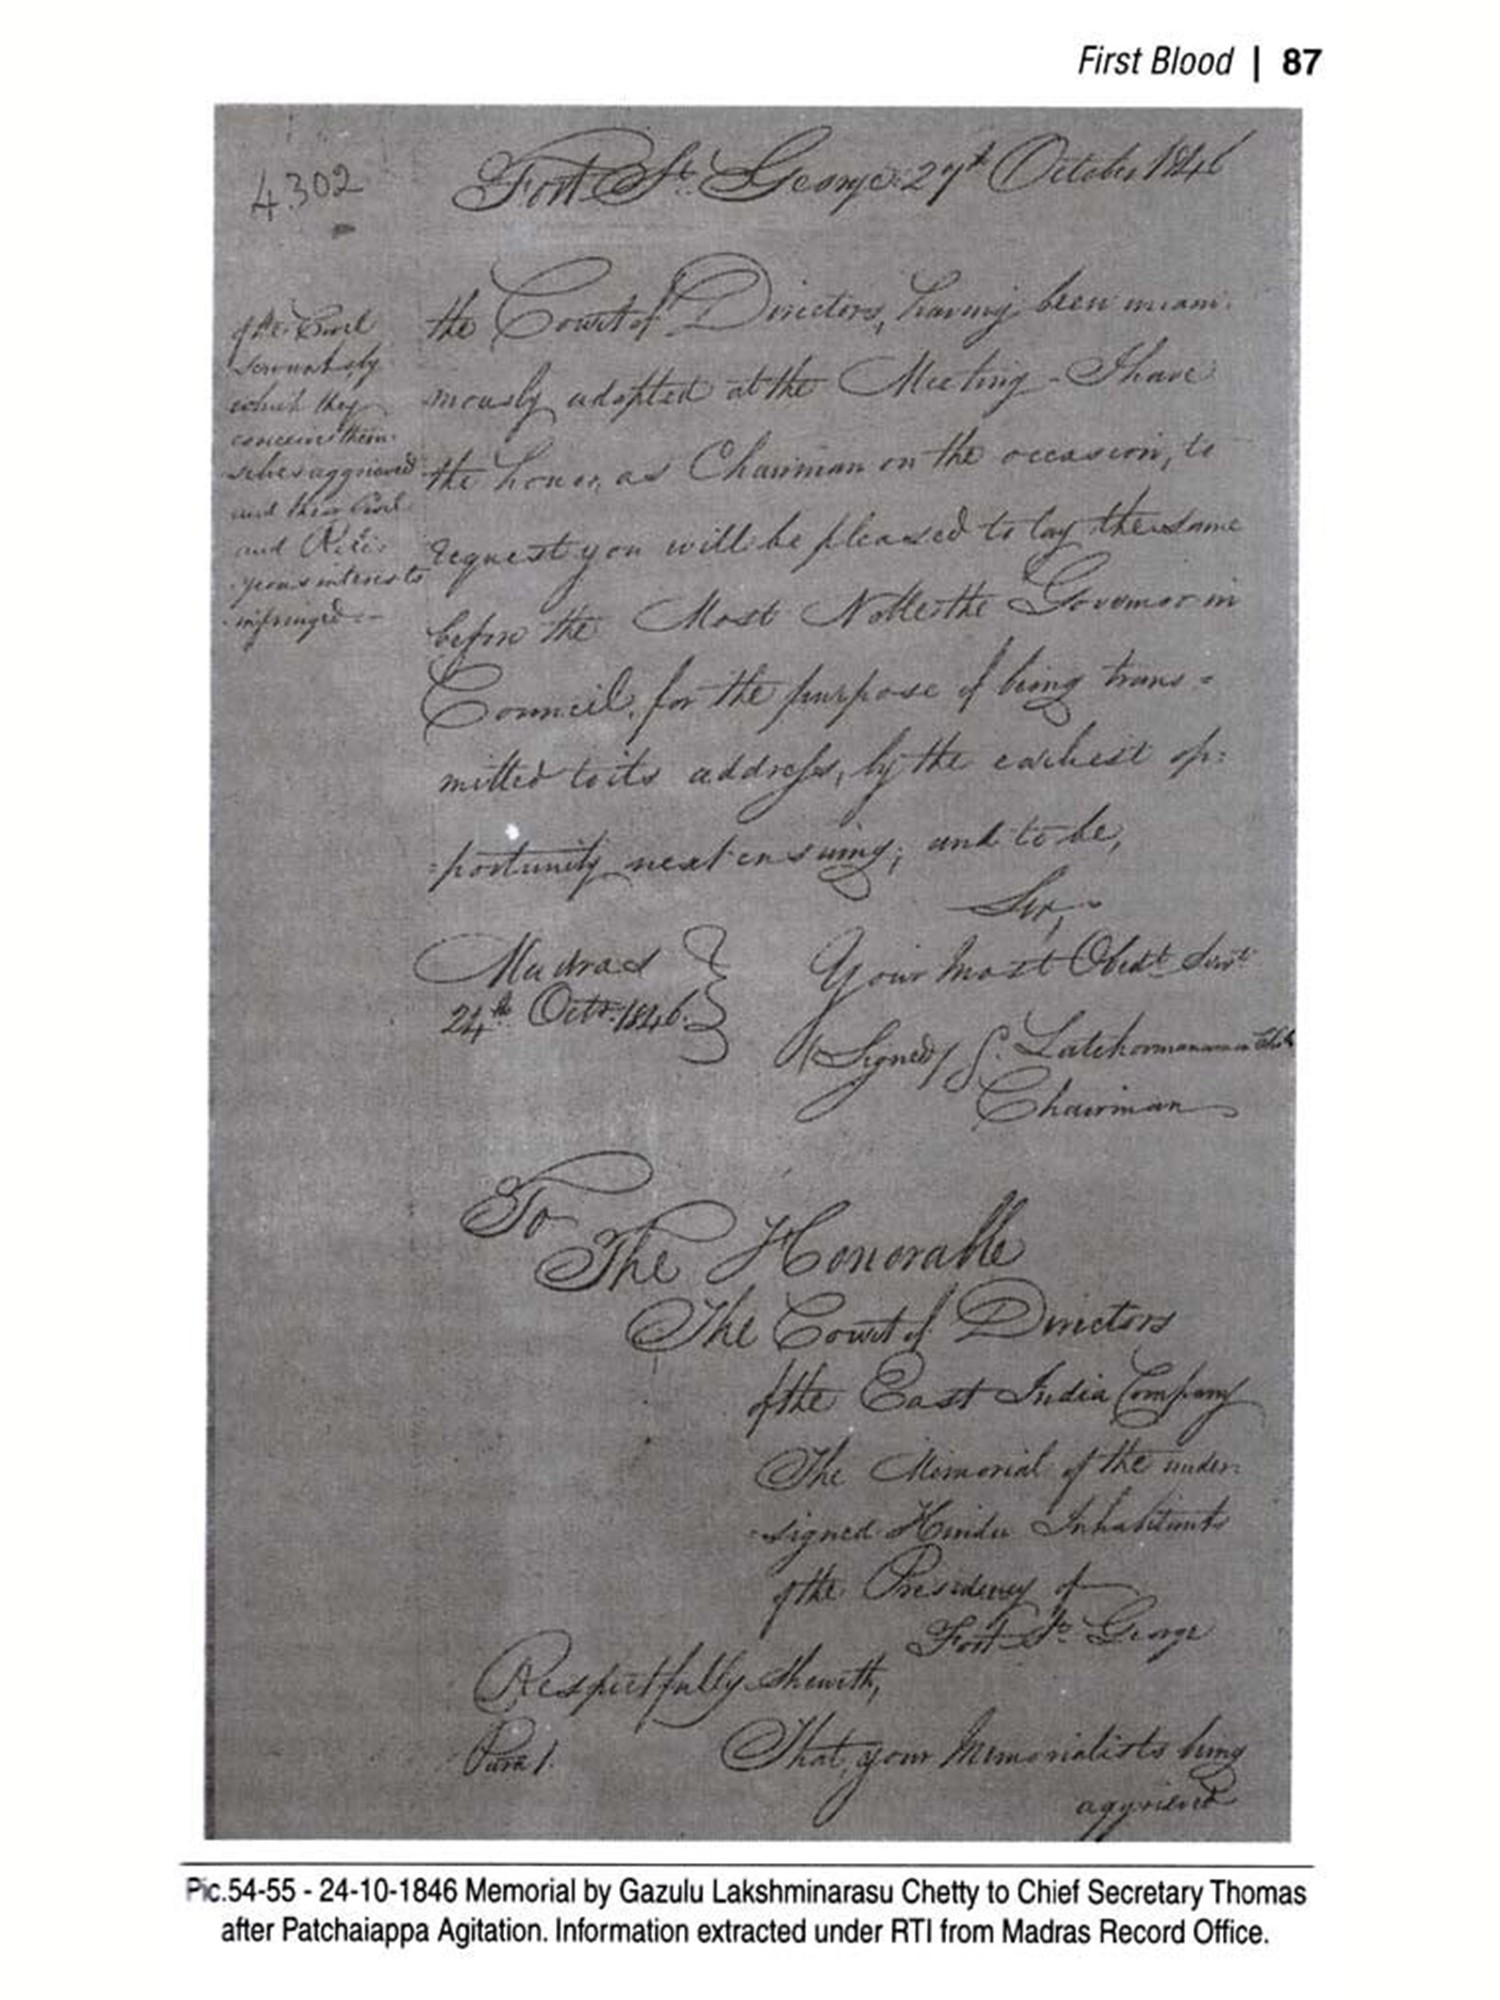 First Blood | 87
4302
Fort St. George 27th October 1846
of the Civil
Servants by
which they
conceive them-
selves aggrieved
and their Civil
and Reli-
gious interests
infringed -
the Court of Directors, having been unani-
mously adopted at the Meeting - I have
the honor, as Chairman on the occasion, to
request you will be pleased to lay the same
before the Most Noble the Governor in
Council, for the purpose of being trans=
mitted to its address, by the earliest op=
=portunity next ensuing; and to be,
Sir,
Madras
24th Octr. 1846.
Your most Obedt. Servt
(Signed) G. Latchoomanarasoo Chetty
Chairman
To
The Honorable
The Court of Directors
of the East India Company
The Memorial of the under-
signed Hindu Inhabitants
of the Presidency of
Fort St. George
Respectfully Sheweth,
Para 1. That, your Memorialists being
aggrieved
Pic.54-55 - 24-10-1846 Memorial by Gazulu Lakshminarasu Chetty to Chief Secretary Thomas
after Patchaiappa Agitation. Information extracted under RTI from Madras Record Office.